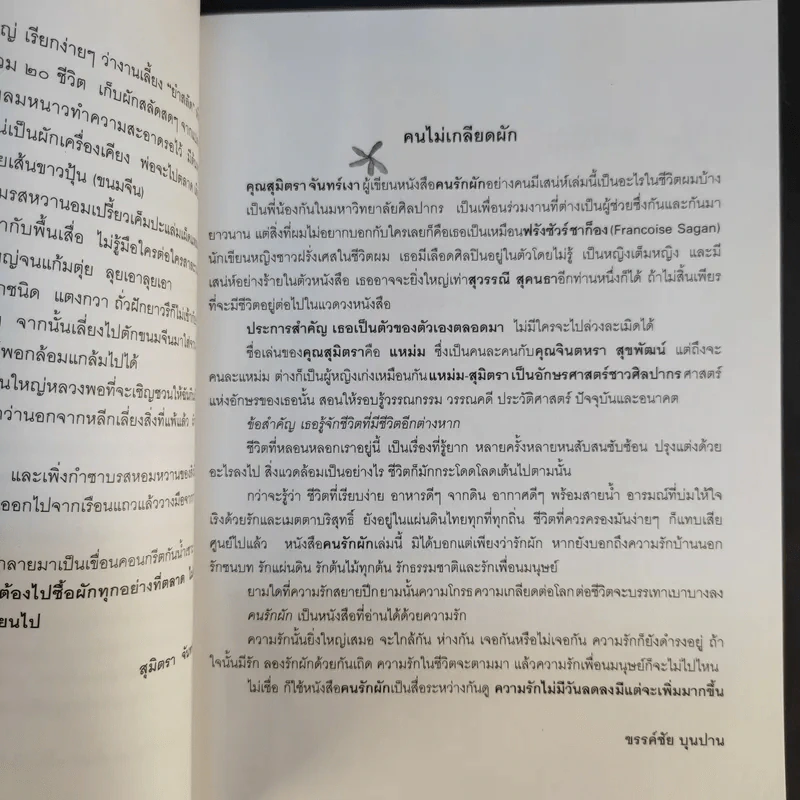 ญ่ เรียกง่ายๆ ว่างานเลี้ยง "ย่าสลัด"
วม ๒๐ ชีวิต เก็บผักสลัดสดๆ จาก
ลมหนาวทำความสะอาดรอไว้
น่เป็นผักเครื่องเคียง พ่อจะไปตลาด
ยเส้นขาวปุ้น (ขนมจีน)
มรสหวานอมเปรี้ยวเค็มปะแล่ม
ากับพื้นเสื่อ ไม่รู้มือใครต่อใคร
หญ่จนแก้มตุ่ย ลุยเอาลุยเอา
กชนิด แตงกวา ถั่วฝักยาวริกไม่เข้า
จากนั้นเลี่ยงไปตักขนมจีนมาใส่
พอกล้อมแกล้มไปได้
นใหญ่หลวงพอที่จะเชิญชวนให้
กว่านอกจากหลีกเลี่ยงสิ่งที่แพ้แล้ว
และเพิ่งกำซาบรสหอมหวานของ
ออกไปจากเรือนแถวแล้ววางมือจาก
กลายมาเป็นเขื่อนคอนกรีตกันน้ำ
ต้องไปซื้อผักทุกอย่างที่ตลาด
ยนไป
สุมิตรา
คนไม่เกลียดผัก
คุณสุมิตรา จันทร์เงา ผู้เขียนหนังสือคนรักผักอย่างคนมีเสน่ห์เล่มนี้เป็นอะไรในชีวิตผมบ้าง
เป็นพี่น้องกันในมหาวิทยาลัยศิลปากร เป็นเพื่อนร่วมงานที่ต่างเป็นผู้ช่วยซึ่งกันและกันมา
ยาวนาน แต่สิ่งที่ผมไม่อยากบอกกับใครเลยก็คือเธอเป็นเหมือนฟรังซัวร์ ซาก็อง (Francoise Sagan)
นักเขียนหญิงชาวฝรั่งเศสในชีวิต เธอมีเลือดศิลปินอยู่ในตัวโดยไม่รู้ เป็นหญิงเต็มหญิง และมี
เสน่ห์อย่างร้ายในตัวหนังสือ เธออาจจะยิ่งใหญ่เท่าสุวรรณี สุคนธาอีกท่านหนึ่งก็ได้ ถ้าไม่สิ้นเพียร
ที่จะมีชีวิตอยู่ต่อไปในแวดวงหนังสือ
ประการสำคัญ เธอเป็นตัวของตัวเองตลอดมา ไม่มีใครจะไปล่วงละเมิดได้
ชื่อเล่นของคุณสุมิตราคือ แหม่ม ซึ่งเป็นคนละคนกับคุณจินตหรา สุขพัฒน์ แต่ถึงจะ
คนละแหม่ม ต่างก็เป็นผู้หญิงเก่งเหมือนกัน แหม่ม-สุมิตรา เป็นอักษรศาสตร์ชาวศิลปากร ศาสตร์
แห่งอักษรของเธอนั้น สอนให้รอบรู้วรรณกรรม วรรณคดี ประวัติศาสตร์ ปัจจุบันและอนาคต
ข้อสำคัญ เธอรู้จักชีวิตที่มีชีวิตอีกต่างหาก
ชีวิตที่หลอนหลอกเราอยู่นี้ เป็นเรื่องที่รู้ยาก หลายครั้งหลายหนสับสนซับซ้อน ปรุงแต่งด้วย
อะไรลงไป สิ่งแวดล้อมเป็นอย่างไร ชีวิตก็มักกระโดดโลดเต้นไปตามนั้น
กว่าจะรู้ว่า ชีวิตที่เรียบง่าย อาหารดีๆ จากดิน อากาศดีๆ พร้อมสายน้ำ อารมณ์ที่บ่มให้ใจ
เริงด้วยรักและเมตตาบริสุทธิ์ ยังอยู่ในแผ่นดินไทยทุกที่ทุกถิ่น ชีวิตที่ควรครองมันง่ายๆ ก็แทบเสีย
ศูนย์ไปแล้ว หนังสือคนรักผักเล่มนี้ มิได้บอกแต่เพียงว่ารักผัก หากยังบอกถึงความรักบ้านนอก
รักชนบท รักแผ่นดิน รักต้นไม้ทุกต้น รักธรรมชาติและรักเพื่อนมนุษย์
ยามใดที่ความรักสยายปีก ยามนั้นความโกรธ ความเกลียดต่อโลก ต่อชีวิตจะบรรเทาเบาบางลง
คนรักผัก เป็นหนังสือที่อ่านได้ด้วยความรัก
ความรักนั้นยิ่งใหญ่เสมอ จะใกล้กัน ห่างกัน เจอกันหรือไม่เจอกัน ความรักก็ยังดำรงอยู่ ถ้า
ใจนั้นมีรัก ลองรักผักด้วยกันเถิด ความรักในชีวิตจะตามมา แล้วความรักเพื่อนมนุษย์ก็จะไม่ไปไหน
ไม่เชื่อ ก็ใช้หนังสือคนรักผักเป็นสื่อระหว่างกันดู ความรักไม่มีวันลดลงมีแต่จะเพิ่มมากขึ้น
ขรรค์ชัย บุนปาน